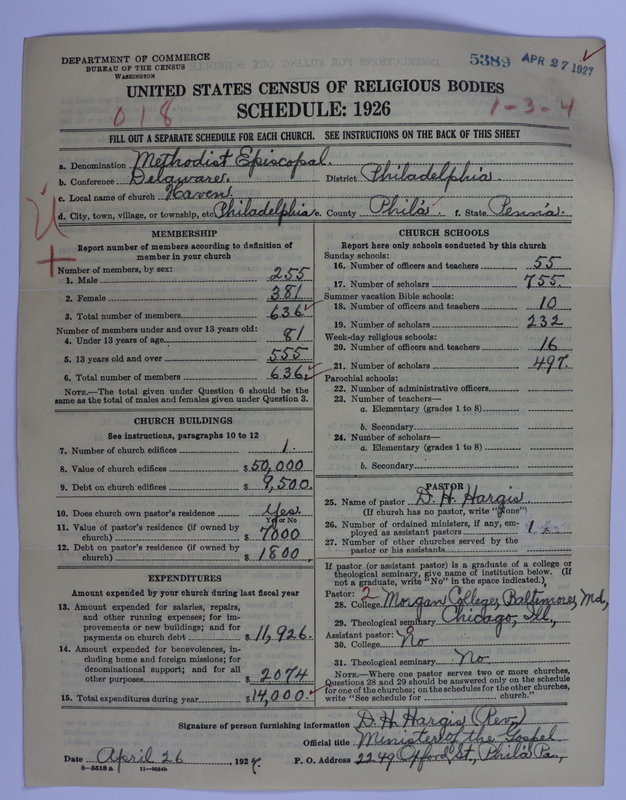 DEPARTMENT OF COMMERCE
BUREAU OF THE CENSUS
WASHINGTON
5389 APR 27 1927
UNITED STATES CENSUS OF RELIGIOUS BODIES
018
SCHEDULE: 1926
1-3-4
FILL OUT A SEPARATE SCHEDULE FOR EACH CHURCH. SEE INSTRUCTIONS ON THE BACK OF THIS SHEET
a. Denomination Methodist Episcopal.
b. Conference Delaware. District Philadelphia
c. Local name of church Haven
d. City, town, village, or township, etc. Philadelphia e. County Phila. f. State Penn'a.
MEMBERSHIP
Report number of members according to definition of
member in your church
Number of members, by sex:
1. Male 255
2. Female 381
3. Total number of members 636
Number of members under and over 13 years old:
4. Under 13 years of age 81
5. 13 years old and over 555
6. Total number of members 636
NOTE.—The total given under Question 6 should be
same as the total of males and females given under Question 3.
CHURCH BUILDINGS
See instructions, paragraphs 10 to 12
7. Number of church edifices 1.
8. Value of church edifices $50,000
9. Debt on church edifices $9,500.
10. Does church own pastor's residence Yes.
Yes or No
11. Value of pastor's residence (if owned by
church) $7000
12. Debt on pastor's residence (if owned by
church) $1800
EXPENDITURES
Amount expended by your church during last fiscal year
13. Amount expended for salaries, repairs,
and other running expenses; for im-
provements or new buildings; and for
payments on church debt $11,926.
14. Amount expended for benevolences, in-
cluding home and foreign missions; for
denominational support; and for all
other purposes $2074
15. Total expenditures during year $14,000.
CHURCH SCHOOLS
Report here only schools conducted by this church
Sunday schools:
16. Number of officers and teachers 55
17. Number of scholars 755.
Summer vacation Bible schools:
18. Number of officers and teachers 10
19. Number of scholars 232
Week-day religious schools:
20. Number of officers and teachers 16
21. Number of scholars 497.
Parochial schools:
22. Number of administrative officers
23. Number of teachers—
a. Elementary (grades 1 to 8)
b. Secondary
24. Number of scholars—
a. Elementary (grades 1 to 8)
b. Secondary
PASTOR
25. Name of pastor D. H. Hargis
(If church has no pastor, write "None")
26. Number of ordained ministers, if any, em-
ployed as assistant pastors 1
27. Number of other churches served by the
pastor or his assistants
If pastor (or assistant pastor) is a graduate of a college or
theological seminary, give name of institution below. (If
not a graduate, write "No" in the space indicated.)
Pastor: 2
28. College Morgan College, Baltimore, Md.,
29. Theological seminary Chicago, Ill.,
Assistant pastor: 0
30. College No
31. Theological seminary No.
NOTE.—Where one pastor serves two or more churches,
Questions 28 and 29 should be answered only on the schedule
for one of the churches; on the schedules for the other churches,
write "See schedule for church."
Signature of person furnishing information D. H. Hargis (Rev.)
Official title Minister of the Gospel.
Date April 26, 1927. P. O. Address 2249 Opford St., Phila Pa.,
8—5518 a 11—9034b